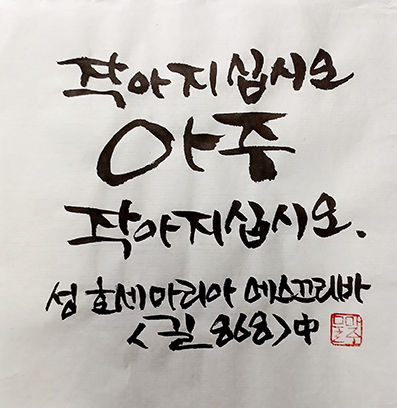 작아지십시오
아주
작아지십시오.
성 호세마리아 에스끄리바
<길 868>中